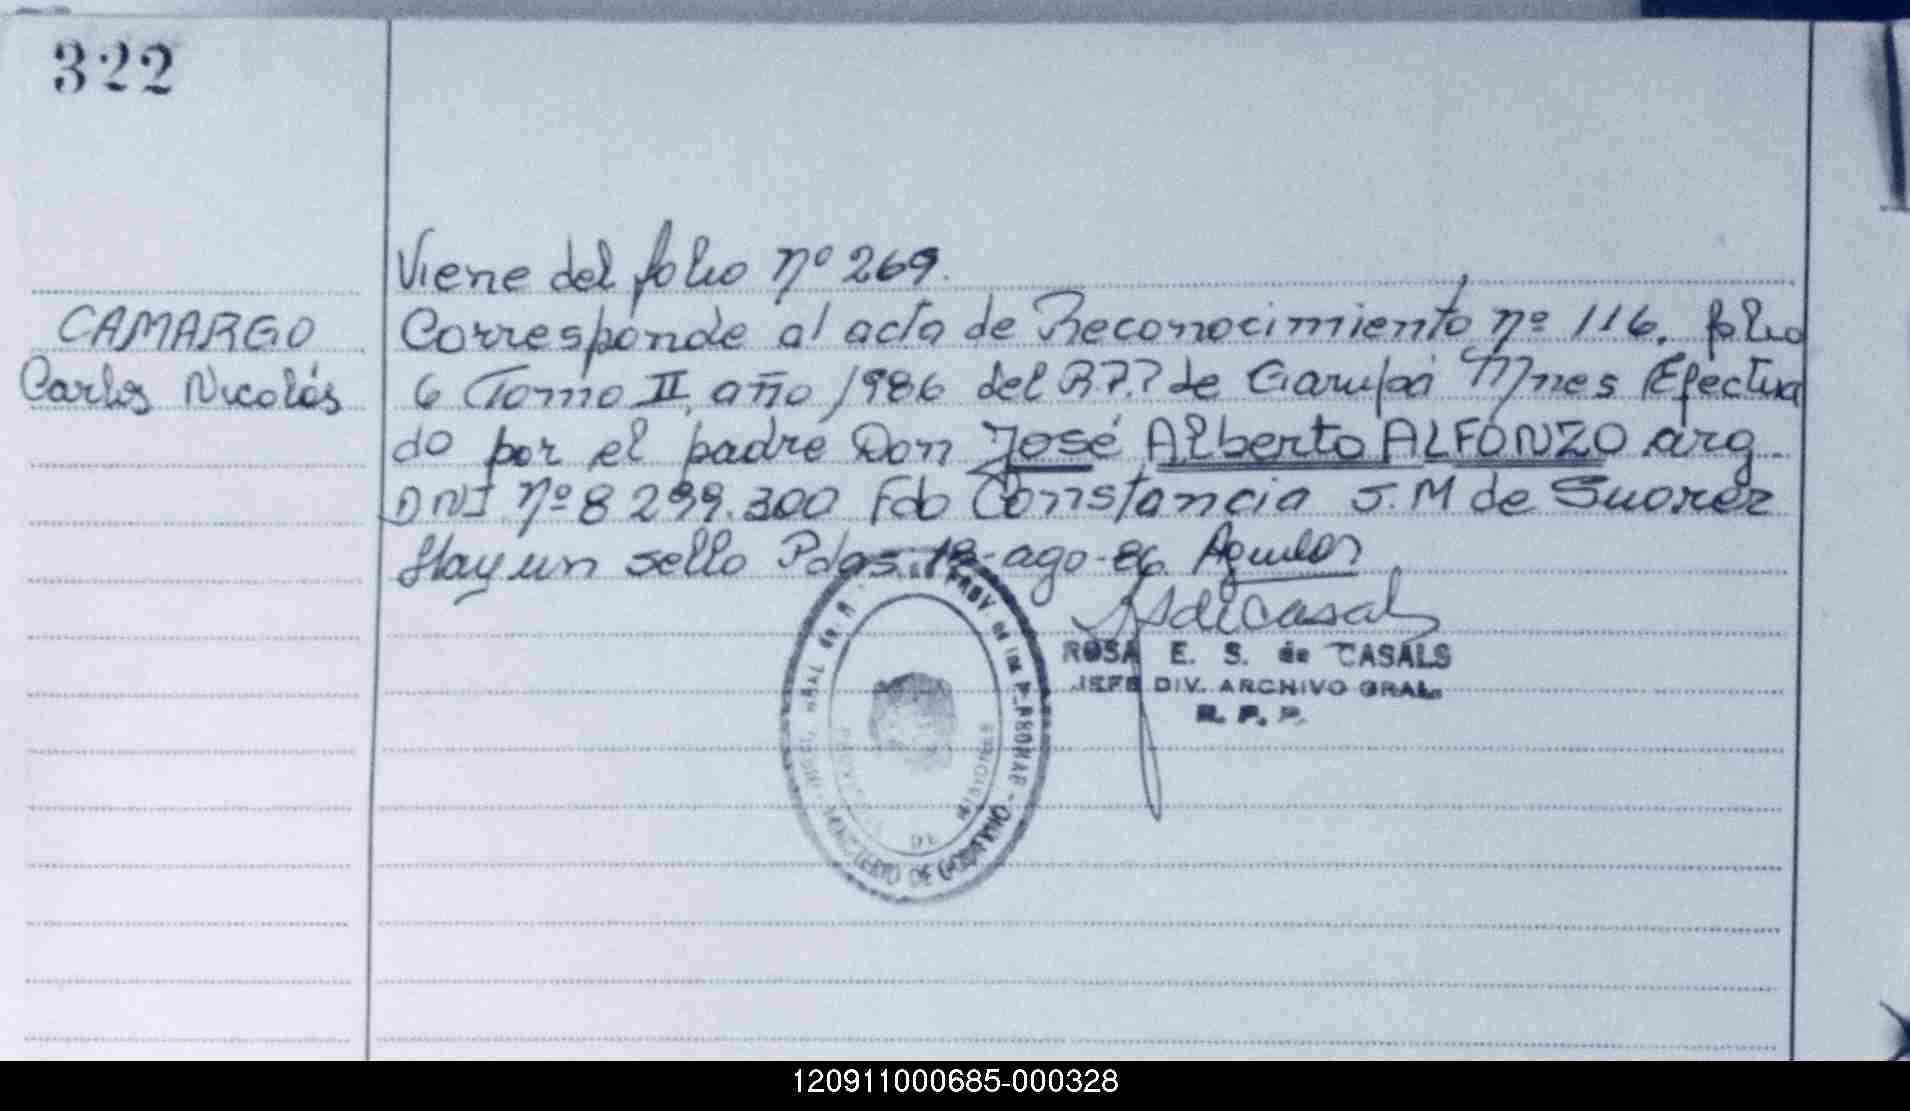 322
Viene del folio nº 269.
CAMARGO
Carlos Nicolás
Corresponde al acta de Reconocimiento nº 116, folio
6 Tomo II, año 1986 del R.P.P de Garupá Mnes Efectua
do por el padre Don José Alberto ALFONZO arg
DNI Nº 8 299.300 Fdo Constancia J.M de Suarez
Hay un sello Pdas. 18-ago-86. Aguilar
ROSA E. S. de CASALS
JEFE DIV. ARCHIVO GRAL.
R. P. P.
PROV. de las PERSONAS - MINISTERIO DE GOBIERNO
PROVINCIA DE MISIONES
120911000685-000328